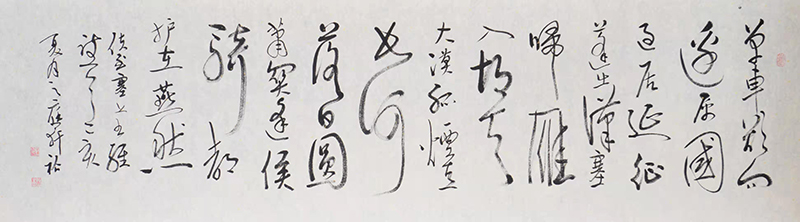 單車欲問
邊属國
過居延征
蓬出漢塞
歸雁
入胡天
大漠孤煙直
長河
落日圓
蕭関逢侯
騎都
护在燕然
使至塞上王維
詩一首己亥
夏月